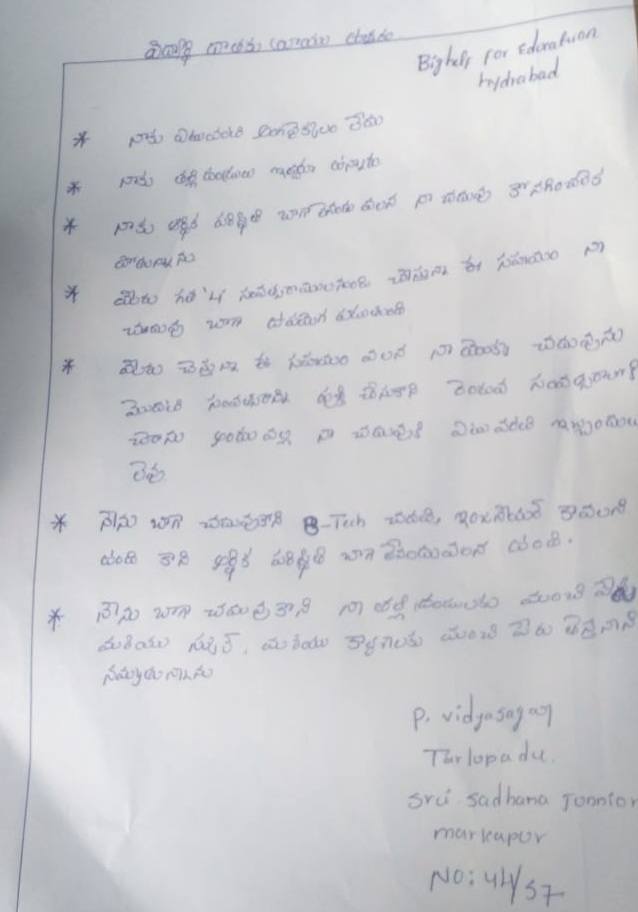 Bighelp for Education
Hydrabad
* నాకు ఎటువంటి అంగవైక్యలం లేదు
* నాకు తల్లి దండ్రులు ఇద్దరూ ఉన్నారు
* నాకు ఆర్థిక పరిస్థితి బాగా లేనందు వలన నా చదువు కొనసాగించలేక
పోతున్నాను
* మీరు గత '4' సంవత్సరాములనుండి చేస్తున్న ఈ సహయం నా
చదువు బాగా
* మీరు చెస్తున్న ఈ సహయం వలన నా యొక్క చదువును
మొదటి సంవత్సరాన్ని పుర్తి చేసుకొని రెండువ
చెరాను అందు వల్ల నా చదువుకి ఎటువంటి
లెవు
* నేను బాగా చదువుకొని B-Tech చదివి, కావలని
ఉంది కాని ఆర్థిక పరిస్థితి బాగ లేనందువలన ఉంది.
* నేను బాగ చదువుకొని నా తల్లి దండ్రులకు మంచి పేరు
మరియు స్కుల్, మరియు కాళేజిలకు మంచి పేరు తెస్తనాని
నమ్ముతున్నాను
P. vidyasagar
Tarlupadu.
Sri Sadhana Junnior
markapur
NO: 44/57